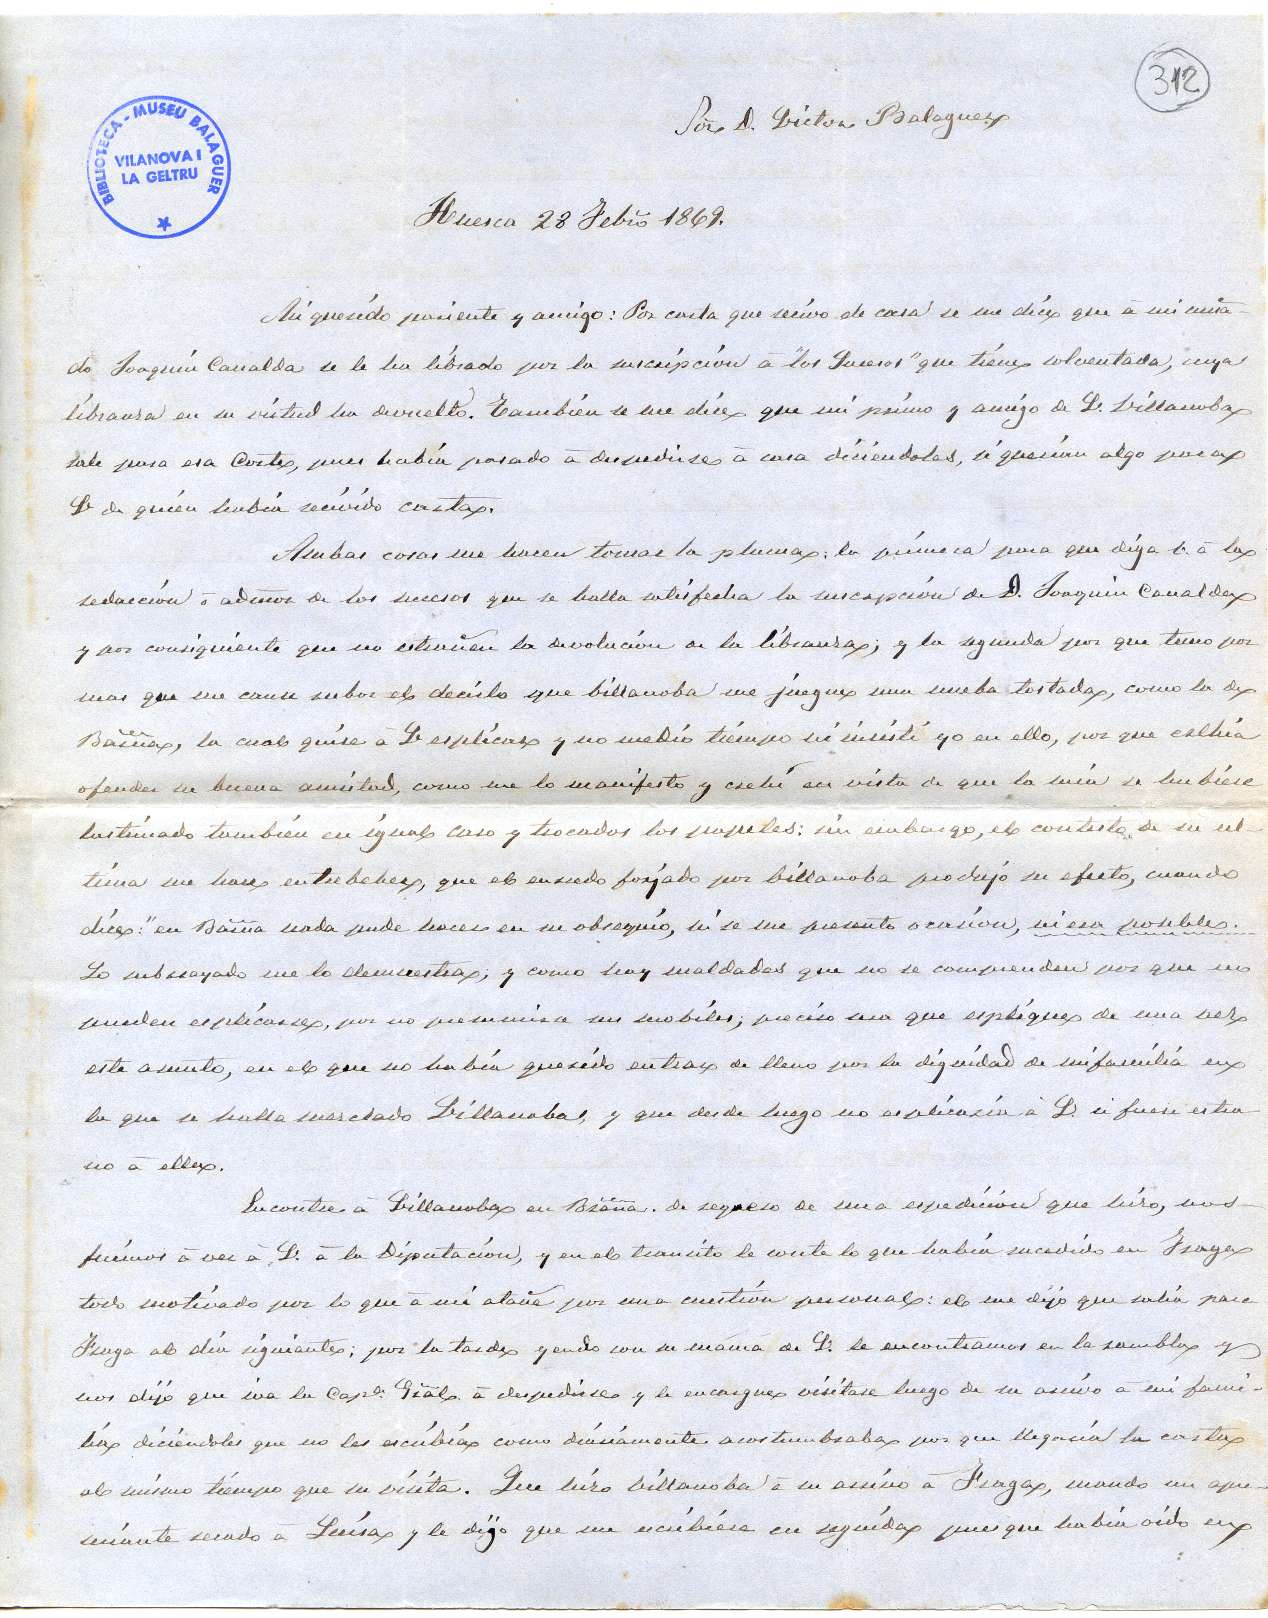 312
BIBLIOTECA - MUSEU BALAGUER
VILANOVA I
LA GELTRU
Sor. D. Victor Balaguer
Huesca 28 Febro 1869.
Mi querido pariente y amigo: Por carta que recivo de casa se me dice que á mi cuña-
do Joaquin Canalda se le ha librado por la suscripción á "los Sucesos" que tiene solventada, cuya
libranza en su virtud ha devuelto. Tambien se me dice que mi primo y amigo de V. Villanoba
sale para esa Corte, pues habia pasado á despedirse á casa diciendoles, si querian algo para
V. de quién habia recivido carta.
Ambas cosas me hacen tomar la pluma; la primera para que diga V. á la
redacción ó admor. de los sucesos que se halla satisfecha la suscripción de D. Joaquin Canalda
y por consiguiente que no estrañen la devolución de la libranza; y la segunda por que temo por
mas que me cause rubor el decirlo que billanoba me juegue una nueba tostada, como la de
Barna, la cual quise á V. esplicar y no medió tiempo ni insisti yo en ello, por que crehia
ofender su buena amistad, como me lo manifesto y crehí en vista de que la mia se hubiese
lastimado tambien en igual caso y trocados los papeles: sin embargo, el contesto de su ul-
tima me hace entrebeher, que el enredo forjado por billanoba produjó su efecto, cuando
dice: "en Barna nada pude hacer en su obsequio, ni se me presento ocasion, ni era posible.
Lo subrayado me lo demuestra; y como hay maldades que no se comprenden por que no
pueden esplicarse, por no presumirse sus mobiles; preciso sera que esplique de una vez
este asunto, en el que no habia querido entrar de lleno por la dignidad de mi familia en
la que se halla mezclado Villanoba, y que desde luego no esplicaria á V. si fuese estra
no á ella.
Encontre á Villanoba en Barna. de regreso de una espedición que hizo, nos
fuimos á ver á V. á la Diputación, y en el transito le conte lo que habia sucedido en Fraga
todo motivado por lo que á mi atañe por una cuestión personal: el me dijo que salia para
Fraga al dia siguiente; por la tarde yendo con su mamá de V. le encontramos en la rambla y
nos dijo que iva la Capa. Gral. á despedirse y le encargue visitase luego de su arrivo á mi fami-
lia diciendoles que no les escribia como diariamente acostumbraba por que llegaria la carta
al mismo tiempo que su visita. Que hizo billanoba á su arrivo á Fraga, mando un
recado á Luisa y le dijo que me escribiera en seguida pues que habia oido en